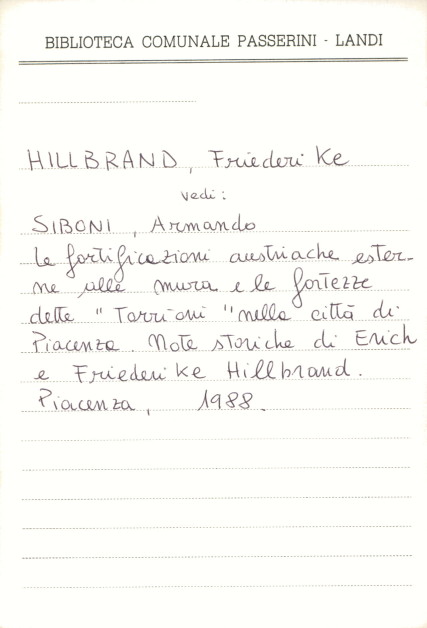 BIBLIOTECA COMUNALE PASSERINI - LANDI
HILLBRAND, Friederike
vedi:
SIBONI, Armando
Le fortificazioni austriache ester-
ne alle mura e le fortezze
dette "Torrioni" nella città di
Piacenza. Note storiche di Erich
e Friederike Hillbrand.
Piacenza, 1988.